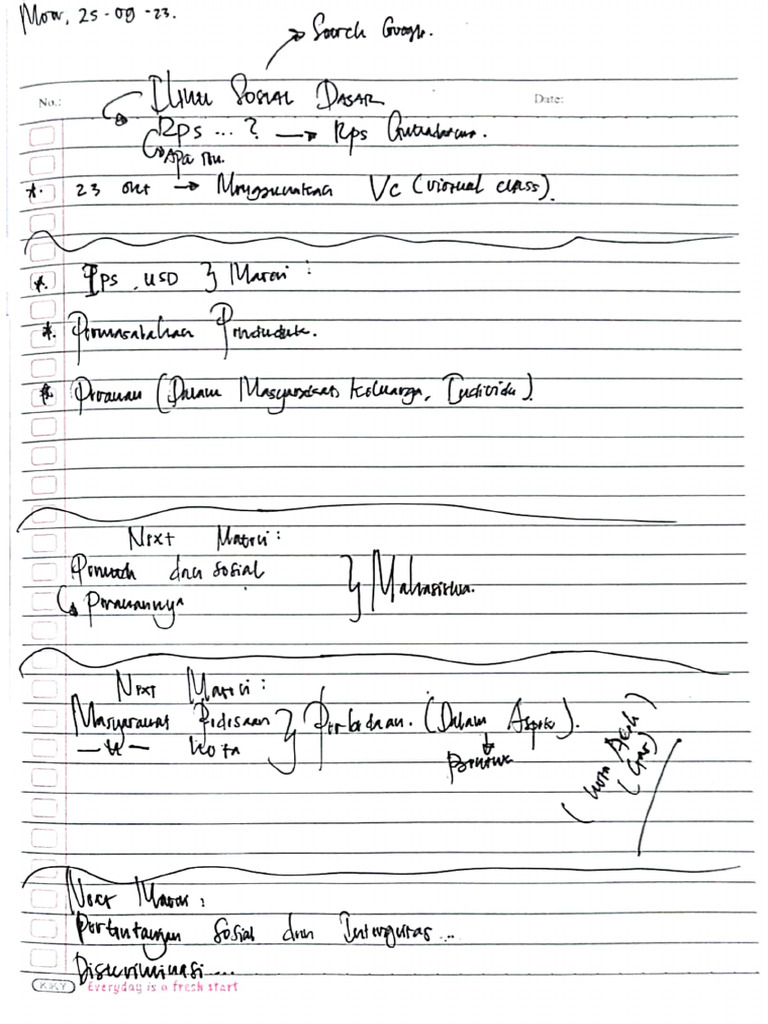 Mon, 25-09-23.
Search Google.
No.:
Date:
Ilmu Sosial Dasar
Rps ... ? → Rps Gunadarma.
Apa itu.
*. 23 Okt → Menggunakan Vc (virtual class).
*. Ips, USD } Materi :
*. Permasalahan Penduduk.
*. Peranan (Dalam Masyarakat, Keluarga, Individu)
Next Materi :
Pemuda dan Sosial
Peranannya
} Mahasiswa.
Next Materi :
Masyarakat Pedesaan } Perbedaan. (Dalam Aspek).
— " — Kota
Next Materi :
Pertentangan Sosial dan Integritas ...
Diskriminasi ...
KKY Everyday is a fresh start